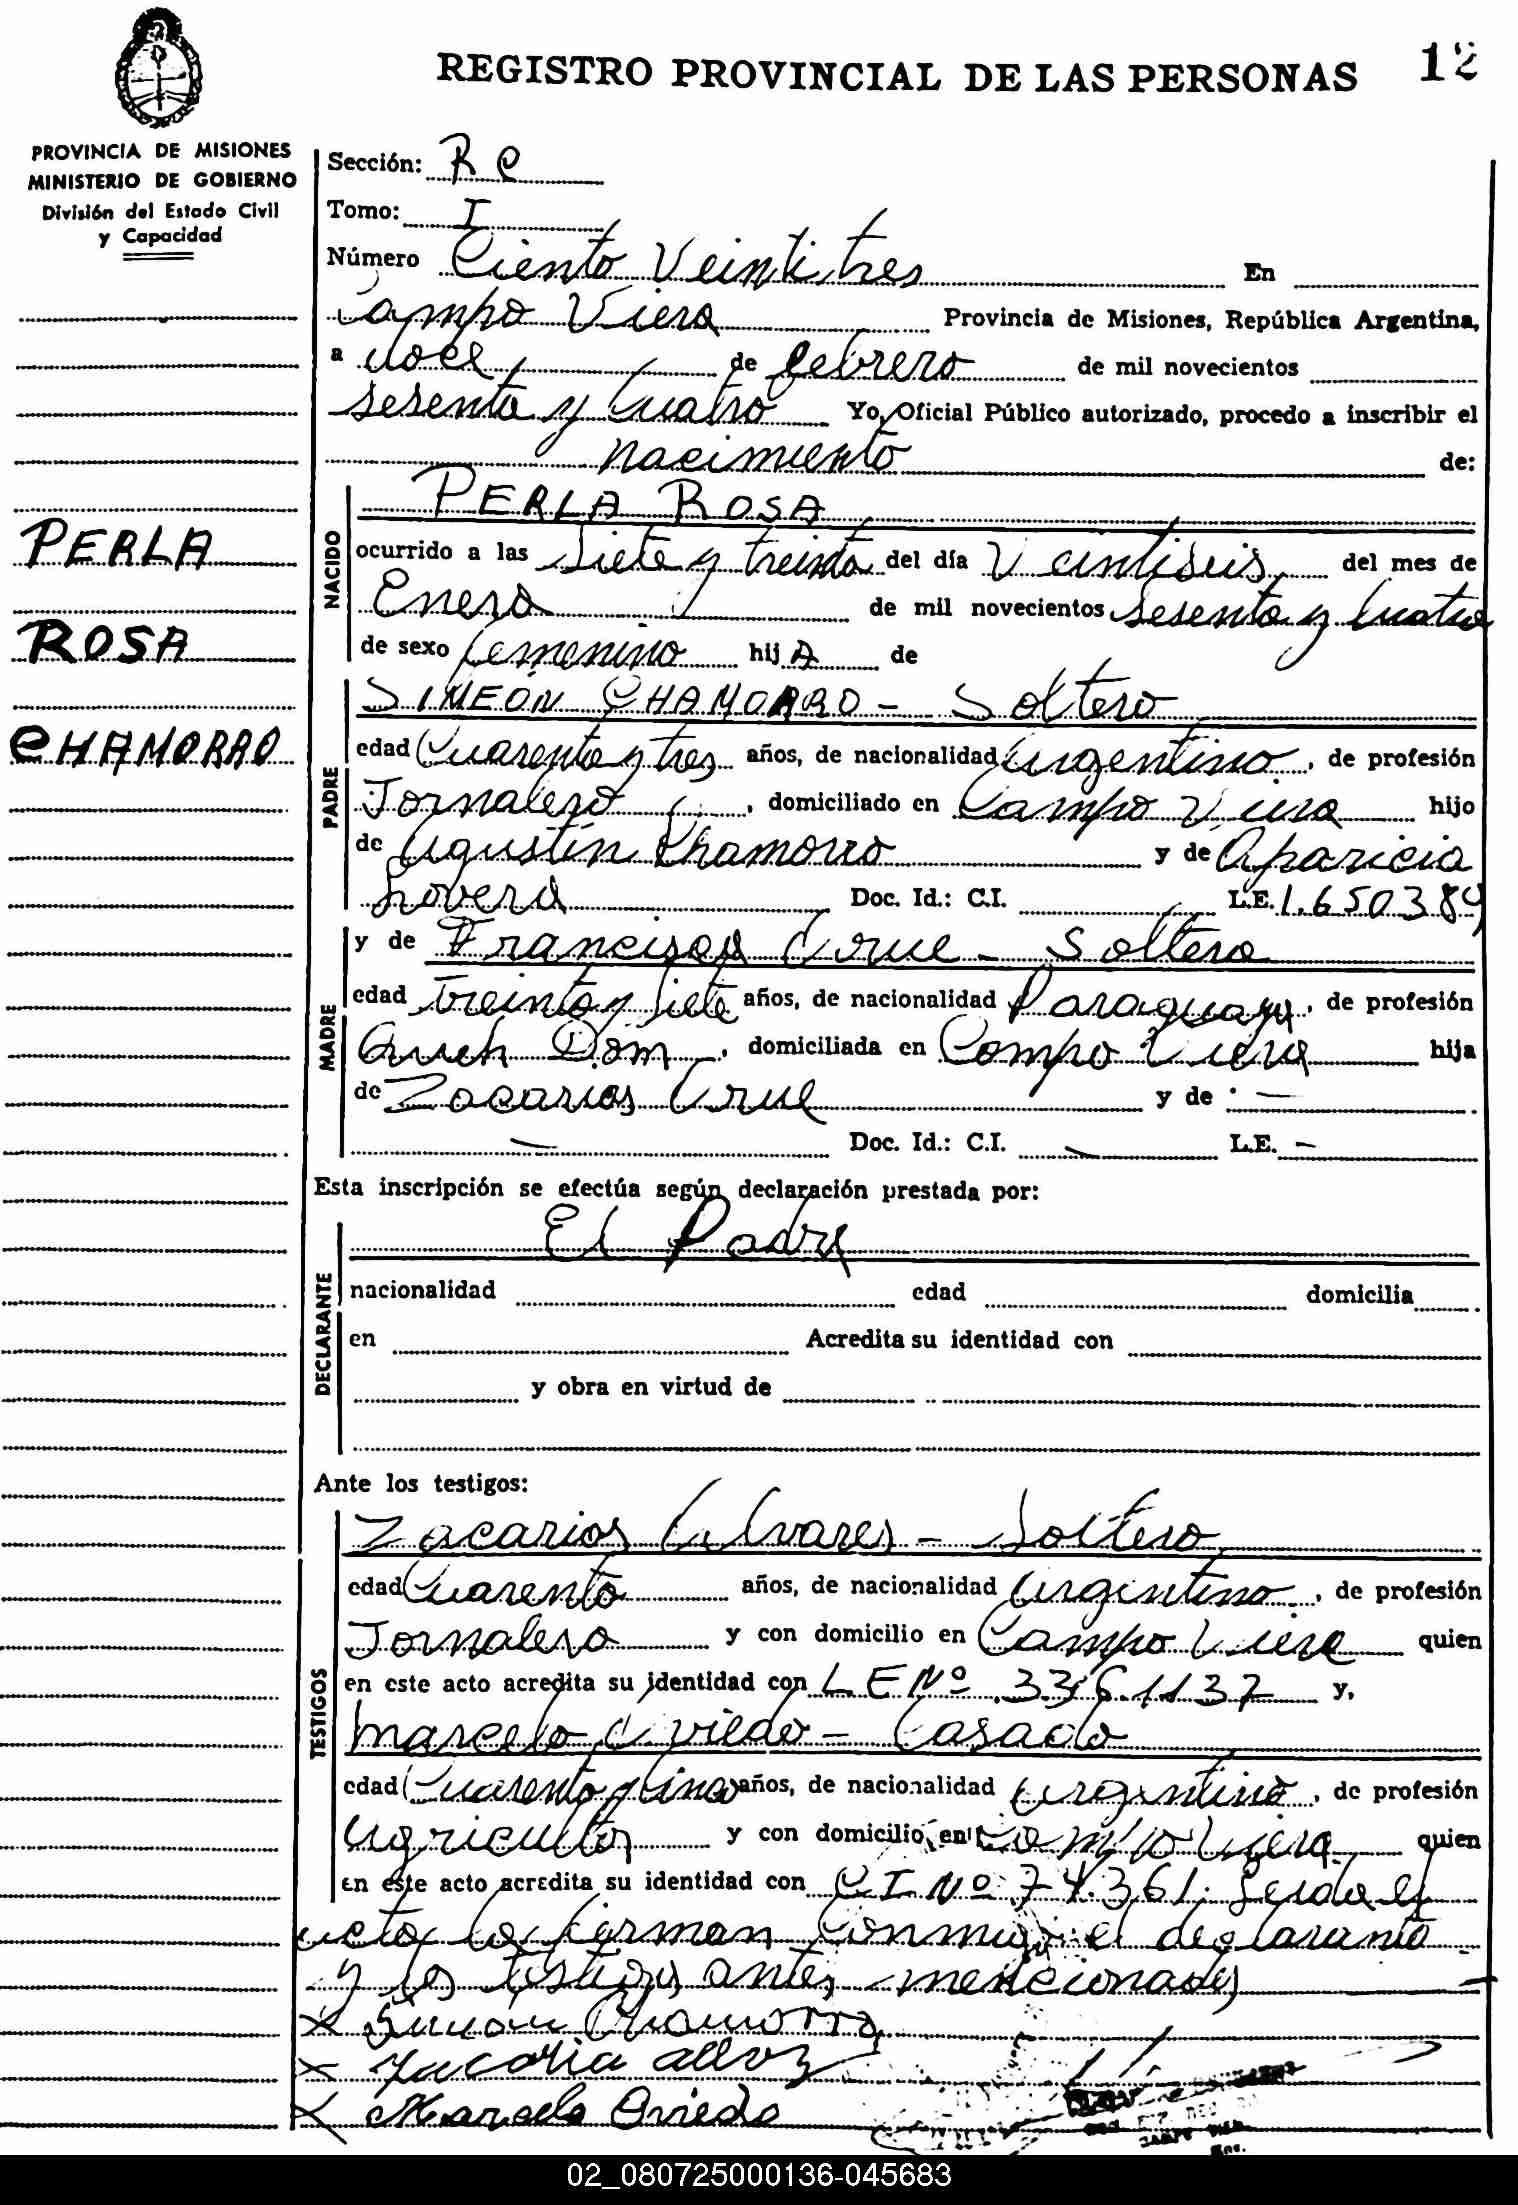 REGISTRO PROVINCIAL DE LAS PERSONAS 12
PROVINCIA DE MISIONES
MINISTERIO DE GOBIERNO
División del Estado Civil
y Capacidad
PERLA
ROSA
CHAMORRO
Sección: R C
Tomo: I
Número Ciento Veintitres En
Campo Viera Provincia de Misiones, República Argentina,
a doce de febrero de mil novecientos
sesenta y cuatro Yo, Oficial Público autorizado, procedo a inscribir el
nacimiento de:
NACIDO
PERLA ROSA
ocurrido a las Siete y treinta del día Veintiseis del mes de
Enero de mil novecientos sesenta y cuatro
de sexo femenino hij A de
PADRE
SIMEÓN CHAMORRO - Soltero
edad Cuarenta y tres años, de nacionalidad argentino, de profesión
Jornalero, domiciliado en Campo Viera hijo
de Agustín Chamorro y de Aparicia
Lovera Doc. Id.: C.I. L.E. 1.650384
MADRE
y de Francisca - Soltera
edad treinta y siete años, de nacionalidad Paraguaya, de profesión
Queh Dom, domiciliada en Campo Viera hija
de Zacarias y de -
- Doc. Id.: C.I. - L.E. -
Esta inscripción se efectúa según declaración prestada por:
DECLARANTE
El Padre
nacionalidad edad domicilia
en Acredita su identidad con
y obra en virtud de
Ante los testigos:
TESTIGOS
Zacarias Alvares - Soltero
edad Cuarenta años, de nacionalidad argentino, de profesión
Jornalero y con domicilio en Campo Viera quien
en este acto acredita su identidad con L E Nº 3361137 y,
Marcelo Oviedo - Casado
edad Cuarenta y años, de nacionalidad argentino, de profesión
agricultor y con domicilio en Campo Viera quien
en este acto acredita su identidad con C I Nº 74.361. Leida el
acta la firman conmigo el declarante
y los testigos antes mencionados
x Simeón Chamorro
x Zacaria
x Marcelo Oviedo
02_080725000136-045683